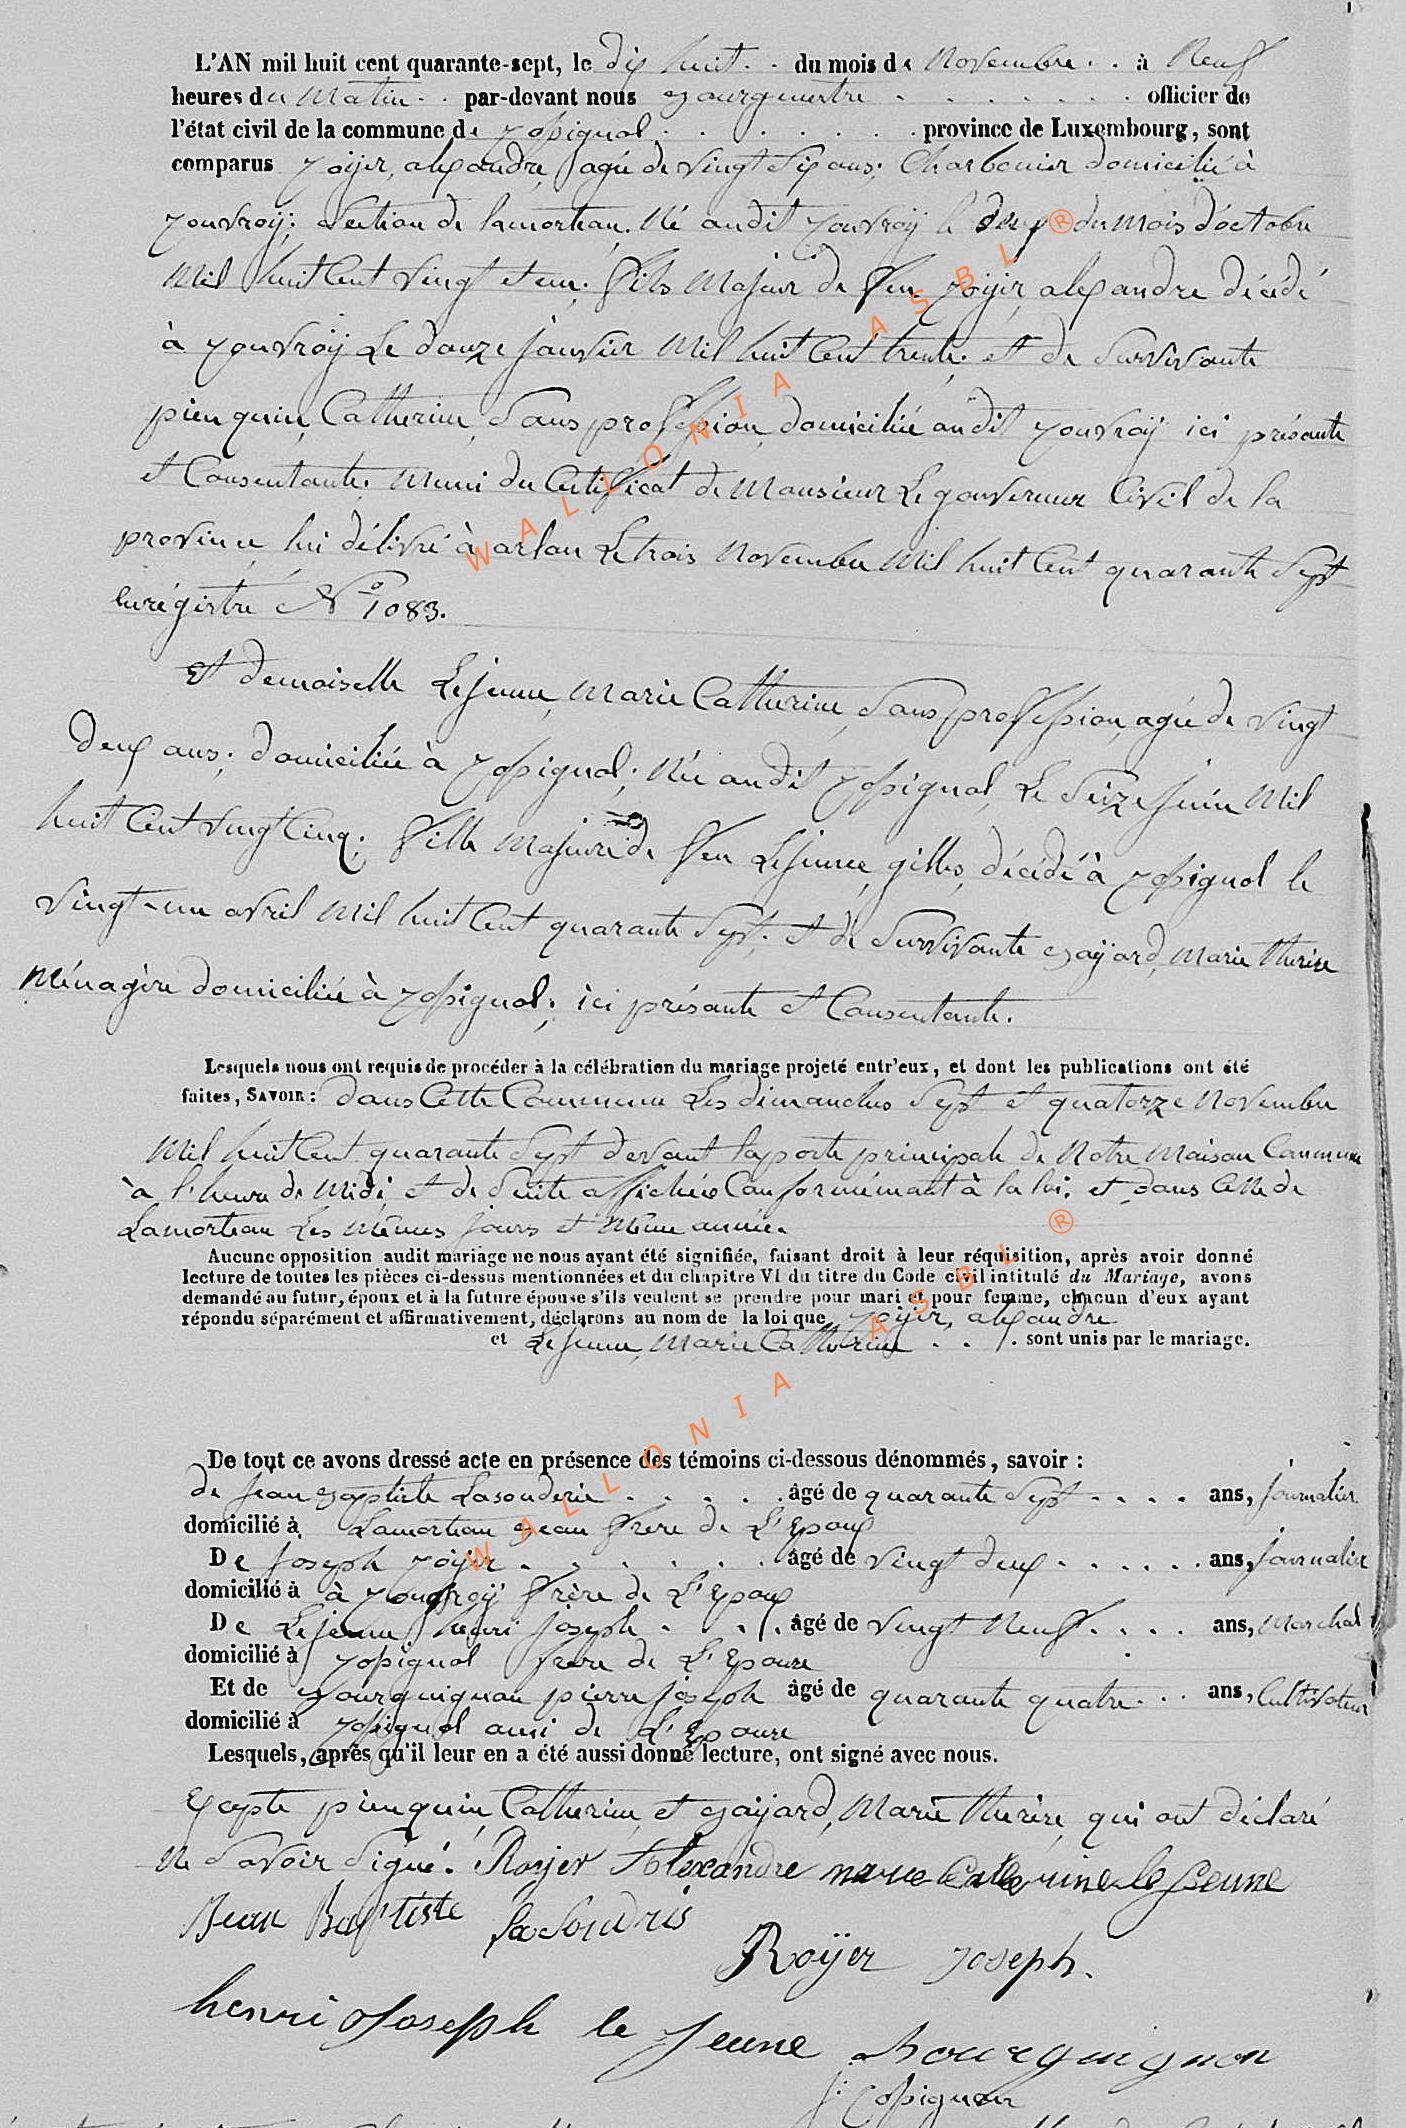 L'AN mil huit cent quarante-sept, le dix huit . . du mois de Novembre . . à Neuf
heures du Matin . . par-devant nous Bourgmestre . . . . . . . officier de
l'état civil de la commune de Rossignol . . . . . . . province de Luxembourg, sont
comparus Royer, alexandre, agée de vingt six ans; Charbonier domicilié à
Rouvroÿ; Section de lamorteau. Né audit Rouvroÿ le deux du Mois d'octobre
Mil huit Cent vingt et un; fils Majeur de feu Roÿer, alexandre décédé
à Rouvroÿ Le douze janvier Mil huit Cent trente. et de Survivante
pienquin, Catherine, Sans profession, domiciliée audit Rouvroÿ ici présente
et Consentante. Muni du Certificat de Monsieur Le gouverneur Civil de la
province lui délivré à arlon Le trois Novembre Mil huit Cent quarante Sept
enrégistré N° 1083.
Et demoiselle Lejeune, Marie Catherine, Sans profession, agée de vingt
deux ans; domiciliée à Rossignol; Née audit Rossignol, Le Seize Juin Mil
huit Cent vingt Cinq; fille Majeure de feu Lejeune, gilles, décédé à Rossignol le
vingt-un avril Mil huit Cent quarante Sept; et de Survivante Bayard, Marie thérèse
Ménagère domiciliée à Rossignol; ici présente et Consentante.
Lesquels nous ont requis de procéder à la célébration du mariage projeté entr'eux, et dont les publications ont été
faites, SAVOIR : dans Cette Commune Les dimanches Sept et quatorze Novembre
Mil huit Cent quarante Sept devant la porte principale de Notre Maison Commune
à l'heure de Midi et de Suite affichées Conformément à la loi. et dans Celle de
Lamorteau Les mêmes jours et Même année.
Aucune opposition audit mariage ne nous ayant été signifiée, faisant droit à leur réquisition, après avoir donné
lecture de toutes les pièces ci-dessus mentionnées et du chapitre VI du titre du Code civil intitulé du Mariage, avons
demandé au futur, époux et à la future épouse s'ils veulent se prendre pour mari et pour femme, chacun d'eux ayant
répondu séparément et affirmativement, déclarons au nom de la loi que Royer, alexandre
et Lejeune, Marie Catherine . . . sont unis par le mariage.
De tout ce avons dressé acte en présence des témoins ci-dessous dénommés, savoir :
de Jean Baptiste Lasonderie . . . . . âgé de quarante Sept . . . . ans, journalier
domicilié à Lamorteau Beau frere de L'Epoux
De Joseph Roÿer . . . . . . . âgé de vingt deux . . . . . . ans, journalier
domicilié à à Rouvroÿ frère de L'Epoux
De Lejeune henri joseph . . . âgé de vingt Neuf . . . . ans, Marchal
domicilié à Rossignol frere de L'Epouse
Et de Bourguignon pierre joseph âgé de quarante quatre . . . ans, Cultivateur
domicilié à Rossignol ami de L'Epouse
Lesquels, après qu'il leur en a été aussi donné lecture, ont signé avec nous.
Excepté pienquin, Catherine, et Bayard, Marie thérèse, qui ont déclaré
Ne Savoir Signé. Royer Alexandre marie Caterine le Jeune
Jean Baptiste laSondris
Roÿer Joseph.
henri Joseph le Jeune Bourguignon
WALLONIA ASBL ®
WALLONIA ASBL ®